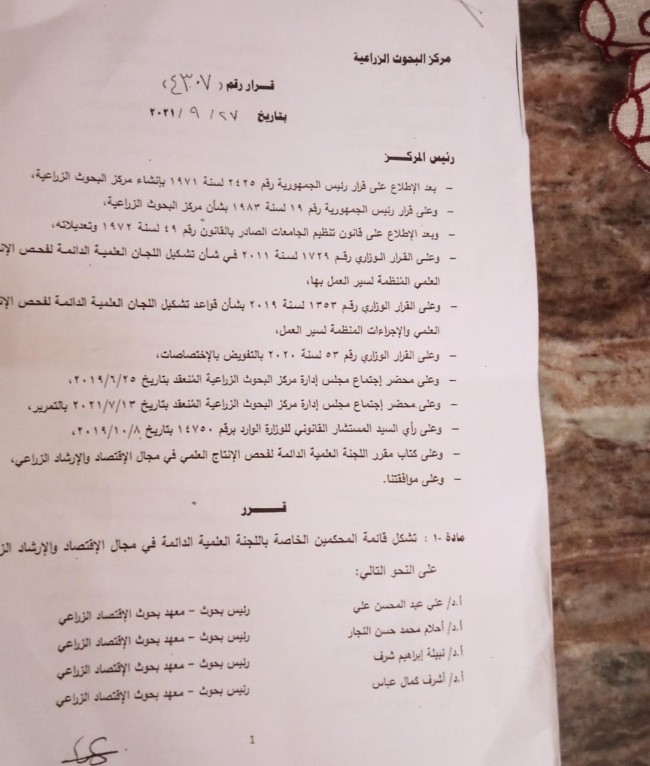 مركز البحوث الزراعية
قـــرار رقم ( ٤٣٠٧ )
بتاريخ ٢٧ / ٩ / ٢٠٢١
رئيس المركـــز
– بعد الإطلاع على قرار رئيس الجمهورية رقم ٢٤٢٥ لسنة ١٩٧١ بإنشاء مركز البحوث الزراعية،
– وعلى قرار رئيس الجمهورية رقم ١٩ لسنة ١٩٨٣ بشأن مركز البحوث الزراعية،
– وبعد الإطلاع على قانون تنظيم الجامعات الصادر بالقانون رقم ٤٩ لسنة ١٩٧٢ وتعديلاته،
– وعلى القرار الوزاري رقم ١٧٢٩ لسنة ٢٠١١ في شأن تشكيل اللجان العلمية الدائمة لفحص الإن
العلمي المُنظمة لسير العمل بها،
– وعلى القرار الوزاري رقم ١٣٥٣ لسنة ٢٠١٩ بشأن قواعد تشكيل اللجان العلمية الدائمة لفحص الإن
العلمي والإجراءات المنظمة لسير العمل،
– وعلى القرار الوزاري رقم ٥٣ لسنة ٢٠٢٠ بالتفويض بالإختصاصات،
– وعلى محضر إجتماع مجلس إدارة مركز البحوث الزراعية المُنعقد بتاريخ ٢٠١٩/٦/٢٥،
– وعلى محضر إجتماع مجلس إدارة مركز البحوث الزراعية المُنعقد بتاريخ ٢٠٢١/٧/١٣ بالتمرير،
– وعلى رأي السيد المستشار القانوني للوزارة الوارد برقم ١٤٧٥٠ بتاريخ ٢٠١٩/١٠/٨،
– وعلى كتاب مقرر اللجنة العلمية الدائمة لفحص الإنتاج العلمي في مجال الإقتصاد والإرشاد الزراعي،
– وعلى موافقتنا.
قـــــرر
مادة -١ : تشكل قائمة المحكمين الخاصة باللجنة العلمية الدائمة في مجال الإقتصاد والإرشاد الز
على النحو التالي:
أ.د/ علي عبد المحسن علي رئيس بحوث – معهد بحوث الإقتصاد الزراعي
أ.د/ أحلام محمد حسن النجار رئيس بحوث – معهد بحوث الإقتصاد الزراعي
أ.د/ نبيلة إبراهيم شرف رئيس بحوث – معهد بحوث الإقتصاد الزراعي
أ.د/ أشرف كمال عباس رئيس بحوث – معهد بحوث الإقتصاد الزراعي
1